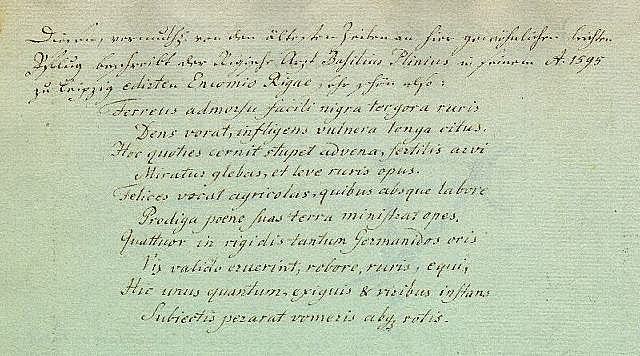 Diesen, vermuthl. von den ältesten Zeiten an hier gewöhnlichen leichten
Pflug beschreibt der Rigische Arzt Basilius Plinius in seinem A. 1595
zu Leipzig edirten Encomio Rigae, sehr schön also:
Ferreus admorsu facili nigra tergora ruris
Dens vorat, infligens vulnera longa citus.
Hoc quoties cernit stupet advena, fertilis arvi
Miratus glebas, et leve ruris opus.
Felices vocat agricolas, quibus absque labore
Prodiga poene suas terra ministrat opes.
Quattuor in rigidis tantum Germanidos oris
Vis valido eruerint, robore, ruris, equi,
Hic unus quantum, exiguis & viribus instans
Subiectis pezarat vomeris absq; rotis.